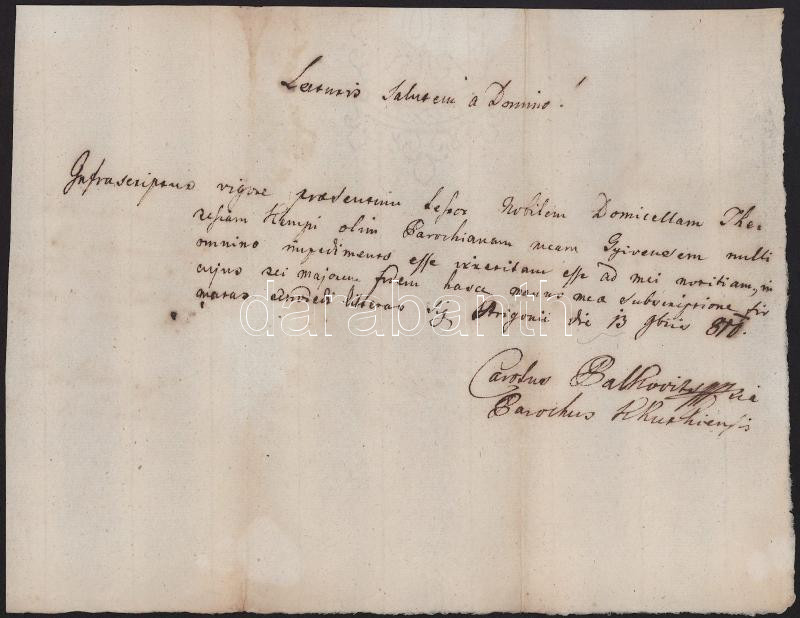 Lecturis Salutem a Domino!
Infrascriptus vigore præsentium testor Nobilem Domicellam The-
resiam Hempi olim Parochianam meam Gyivensem nulli
omnino impedimento esse esse ad mei notitiam, in
cujus rei majorem fidem hasce manus meæ Subscriptione fir
matas literas Sig Strigonii die 13 9bris 810.
Carolus Palkovits
Parochus
darabanth